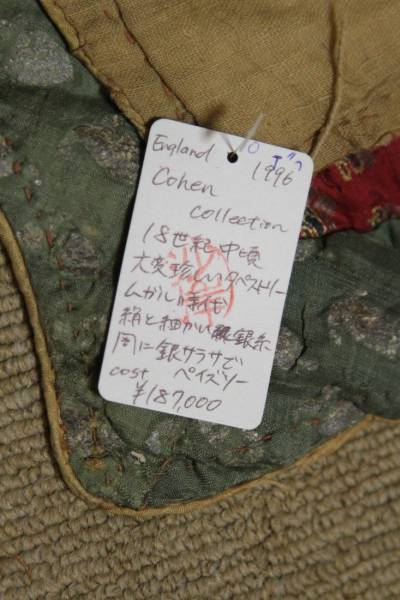 England
1996
Cohen
collection
18世紀中頃
大変珍しいタペストリー
ムガール時代
絹と細かい銀糸
周に銀サラサで
ペイズリー
cost
¥187,000